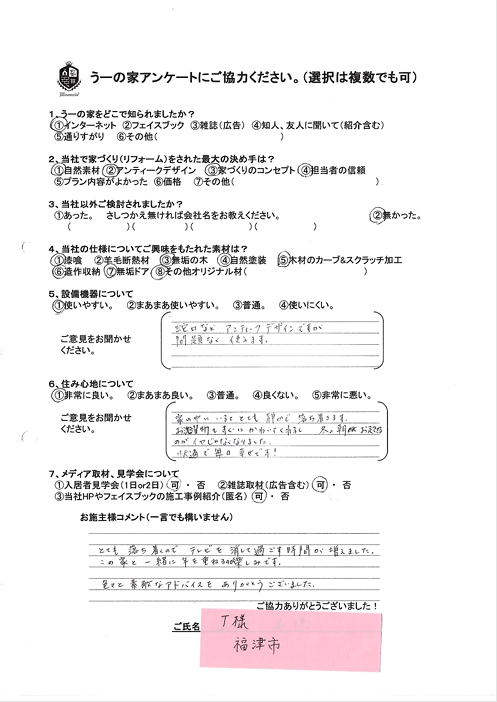 うーの家アンケートにご協力ください。（選択は複数でも可）
1、うーの家をどこで知られましたか？
①インターネット ②フェイスブック ③雑誌（広告） ④知人、友人に聞いて（紹介含む）
⑤通りすがり ⑥その他（ ）
2、当社で家づくり（リフォーム）をされた最大の決め手は？
①自然素材 ②アンティークデザイン ③家づくりのコンセプト ④担当者の信頼
⑤プラン内容がよかった ⑥価格 ⑦その他（ ）
3、当社以外ご検討されましたか？
①あった。 さしつかえ無ければ会社名をお教えください。 ②無かった。
（ ）（ ）（ ）（ ）
4、当社の仕様についてご興味をもたれた素材は？
①漆喰 ②羊毛断熱材 ③無垢の木 ④自然塗装 ⑤木材のカーブ&スクラッチ加工
⑥造作収納 ⑦無垢ドア ⑧その他オリジナル材（ ）
5、設備機器について
①使いやすい。 ②まあまあ使いやすい。 ③普通。 ④使いにくい。
ご意見をお聞かせ
ください。
蛇口など アンティークデザインですが
問題なく 使えます。
6、住み心地について
①非常に良い。 ②まあまあ良い。 ③普通。 ④良くない。 ⑤非常に悪い。
ご意見をお聞かせ
ください。
家の中に いると とても 静かで 落ち着きます。
お洗濯物も すぐに かわいてくれるし 冬の朝
のが イヤじゃなくなりました。
快適で 毎日 幸せです！
7、メディア取材、見学会について
①入居者見学会（1日or2日） 可 ・ 否 ②雑誌取材（広告含む） 可 ・ 否
③当社HPやフェイスブックの施工事例紹介（匿名） 可 ・ 否
お施主様コメント（一言でも構いません）
とても 落ち着くので テレビを 消して 過ごす 時間が 増えました。
この家と 一緒に 年を 重ねるのが 楽しみです。
色々と 素敵なアドバイスを ありがとうございました。
ご協力ありがとうございました！
ご氏名
T様
福津市